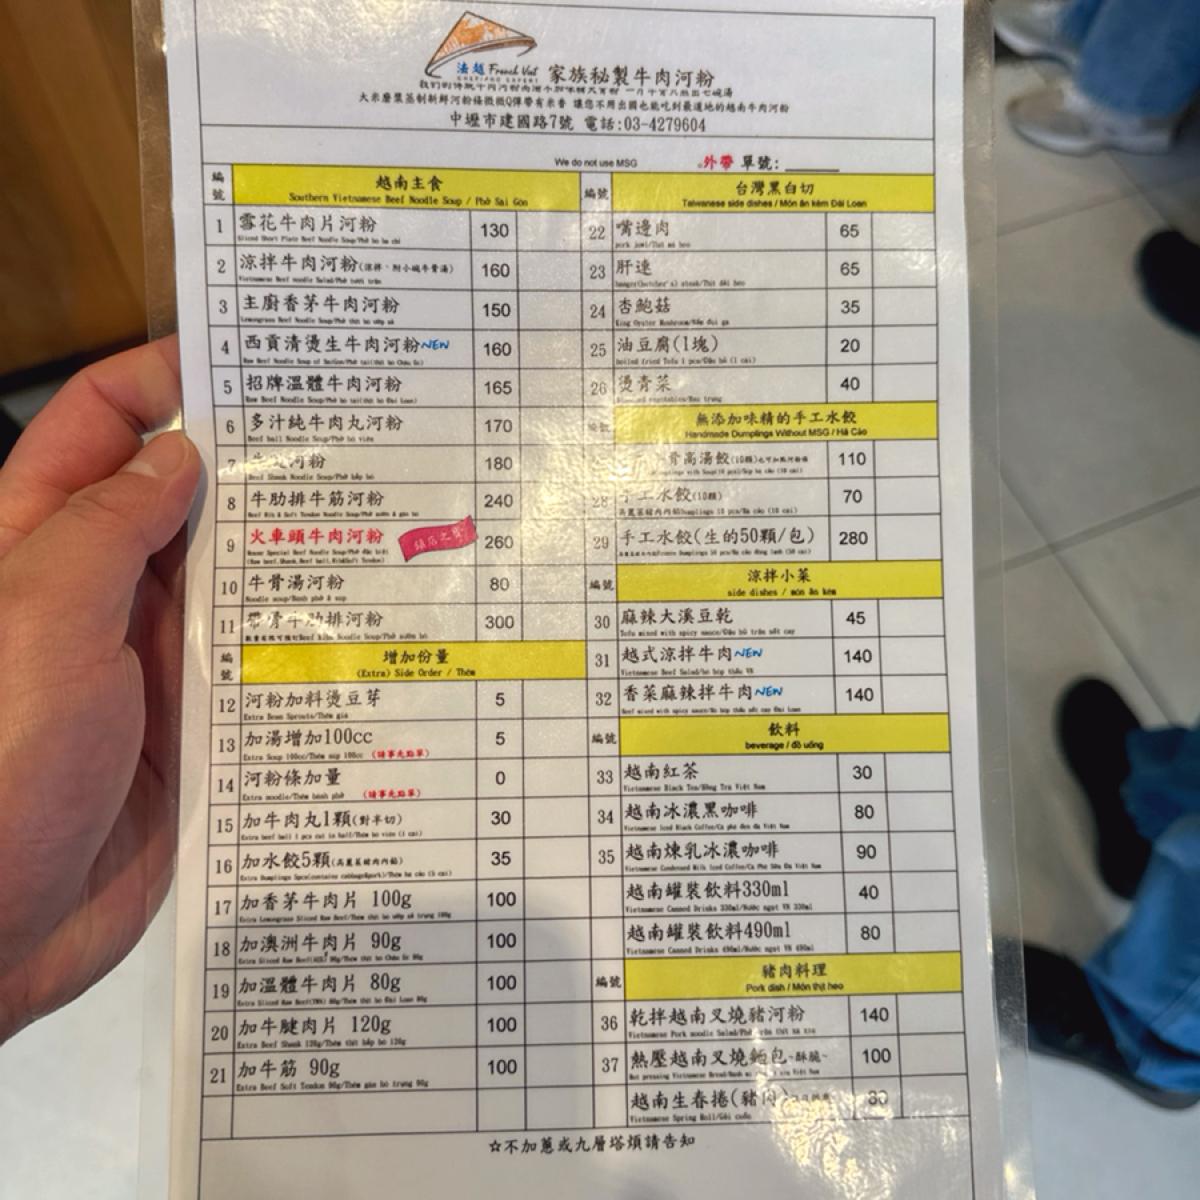 法越 French Viet 家族秘製牛肉河粉
大米磨漿蒸制新鮮河粉條微微Q彈帶有米香 讓您不用出國也能吃到最道地的越南牛肉河粉
中壢市建國路7號 電話:03-4279604
We do not use MSG 外帶 單號:
編號 越南主食
Southern Vietnamese Beef Noodle Soup / Phở Sài Gòn
1 雪花牛肉片河粉 130
2 涼拌牛肉河粉(涼拌、附小碗牛骨湯) 160
Vietnamese Beef noodle Salad/Phở
3 主廚香茅牛肉河粉 150
Lemongrass Beef Noodle Soup/Phở
4 西貢清燙生牛肉河粉NEW 160
5 招牌溫體牛肉河粉 165
6 多汁純牛肉丸河粉 170
Beef ball Noodle Soup/Phở bò viên
7 河粉 180
Beef Shank Noodle Soup/Phở bắp bò
8 牛肋排牛筋河粉 240
9 火車頭牛肉河粉 鎮店之寶 260
House Special Beef Noodle Soup/Phở đặc biệt
10 牛骨湯河粉 80
11 帶骨牛肋排河粉 300
編號 增加份量
(Extra) Side Order / Thêm
12 河粉加料燙豆芽 5
Extra Bean Sprouts/Thêm giá
13 加湯增加100cc 5
Extra Soup 100cc/Thêm súp 100cc (請事先點單)
14 河粉條加量 0
Extra noodle/Thêm bánh phở (請事先點單)
15 加牛肉丸1顆(對半切) 30
Extra beef ball 1 pcs cut in half/Thêm bò viên (1 cái)
16 加水餃5顆(高麗菜豬肉內餡) 35
17 加香茅牛肉片 100g 100
18 加澳洲牛肉片 90g 100
19 加溫體牛肉片 80g 100
20 加牛腱肉片 120g 100
Extra Beef Shank 120g/Thêm thịt bắp bò 120g
21 加牛筋 90g 100
Extra Beef Soft Tendon 90g/Thêm gân bò trụng 90g
編號 台灣黑白切
Taiwanese side dishes / Món ăn kèm Đài Loan
22 嘴邊肉 65
23 肝連 65
24 杏鮑菇 35
25 油豆腐(1塊) 20
26 燙青菜 40
編號 無添加味精的手工水餃
Handmade Dumplings Without MSG / Há Cảo
骨高湯餃(10顆) 110
28 手工水餃(10顆) 70
29 手工水餃(生的50顆/包) 280
編號 涼拌小菜
side dishes / món ăn kèm
30 麻辣大溪豆乾 45
31 越式涼拌牛肉NEW 140
32 香菜麻辣拌牛肉NEW 140
編號 飲料
beverage / đồ uống
33 越南紅茶 30
Vietnamese Black Tea/Hồng Trà Việt Nam
34 越南冰濃黑咖啡 80
Vietnamese Iced Black Coffee/Cà phê đen đá Việt Nam
35 越南煉乳冰濃咖啡 90
Vietnamese Condensed Milk Iced Coffee/Cà Phê Sữa Đá Việt Nam
越南罐裝飲料330ml 40
Vietnamese Canned Drinks 330ml/Nước ngọt VN 330ml
越南罐裝飲料490ml 80
Vietnamese Canned Drinks 490ml/Nước ngọt VN 490ml
編號 豬肉料理
Pork dish / Món thịt heo
36 乾拌越南叉燒豬河粉 140
37 熱壓越南叉燒麵包~酥脆~ 100
越南生春捲(豬肉) 80
Vietnamese Spring Roll/Gỏi cuốn
☆不加蔥或九層塔煩請告知